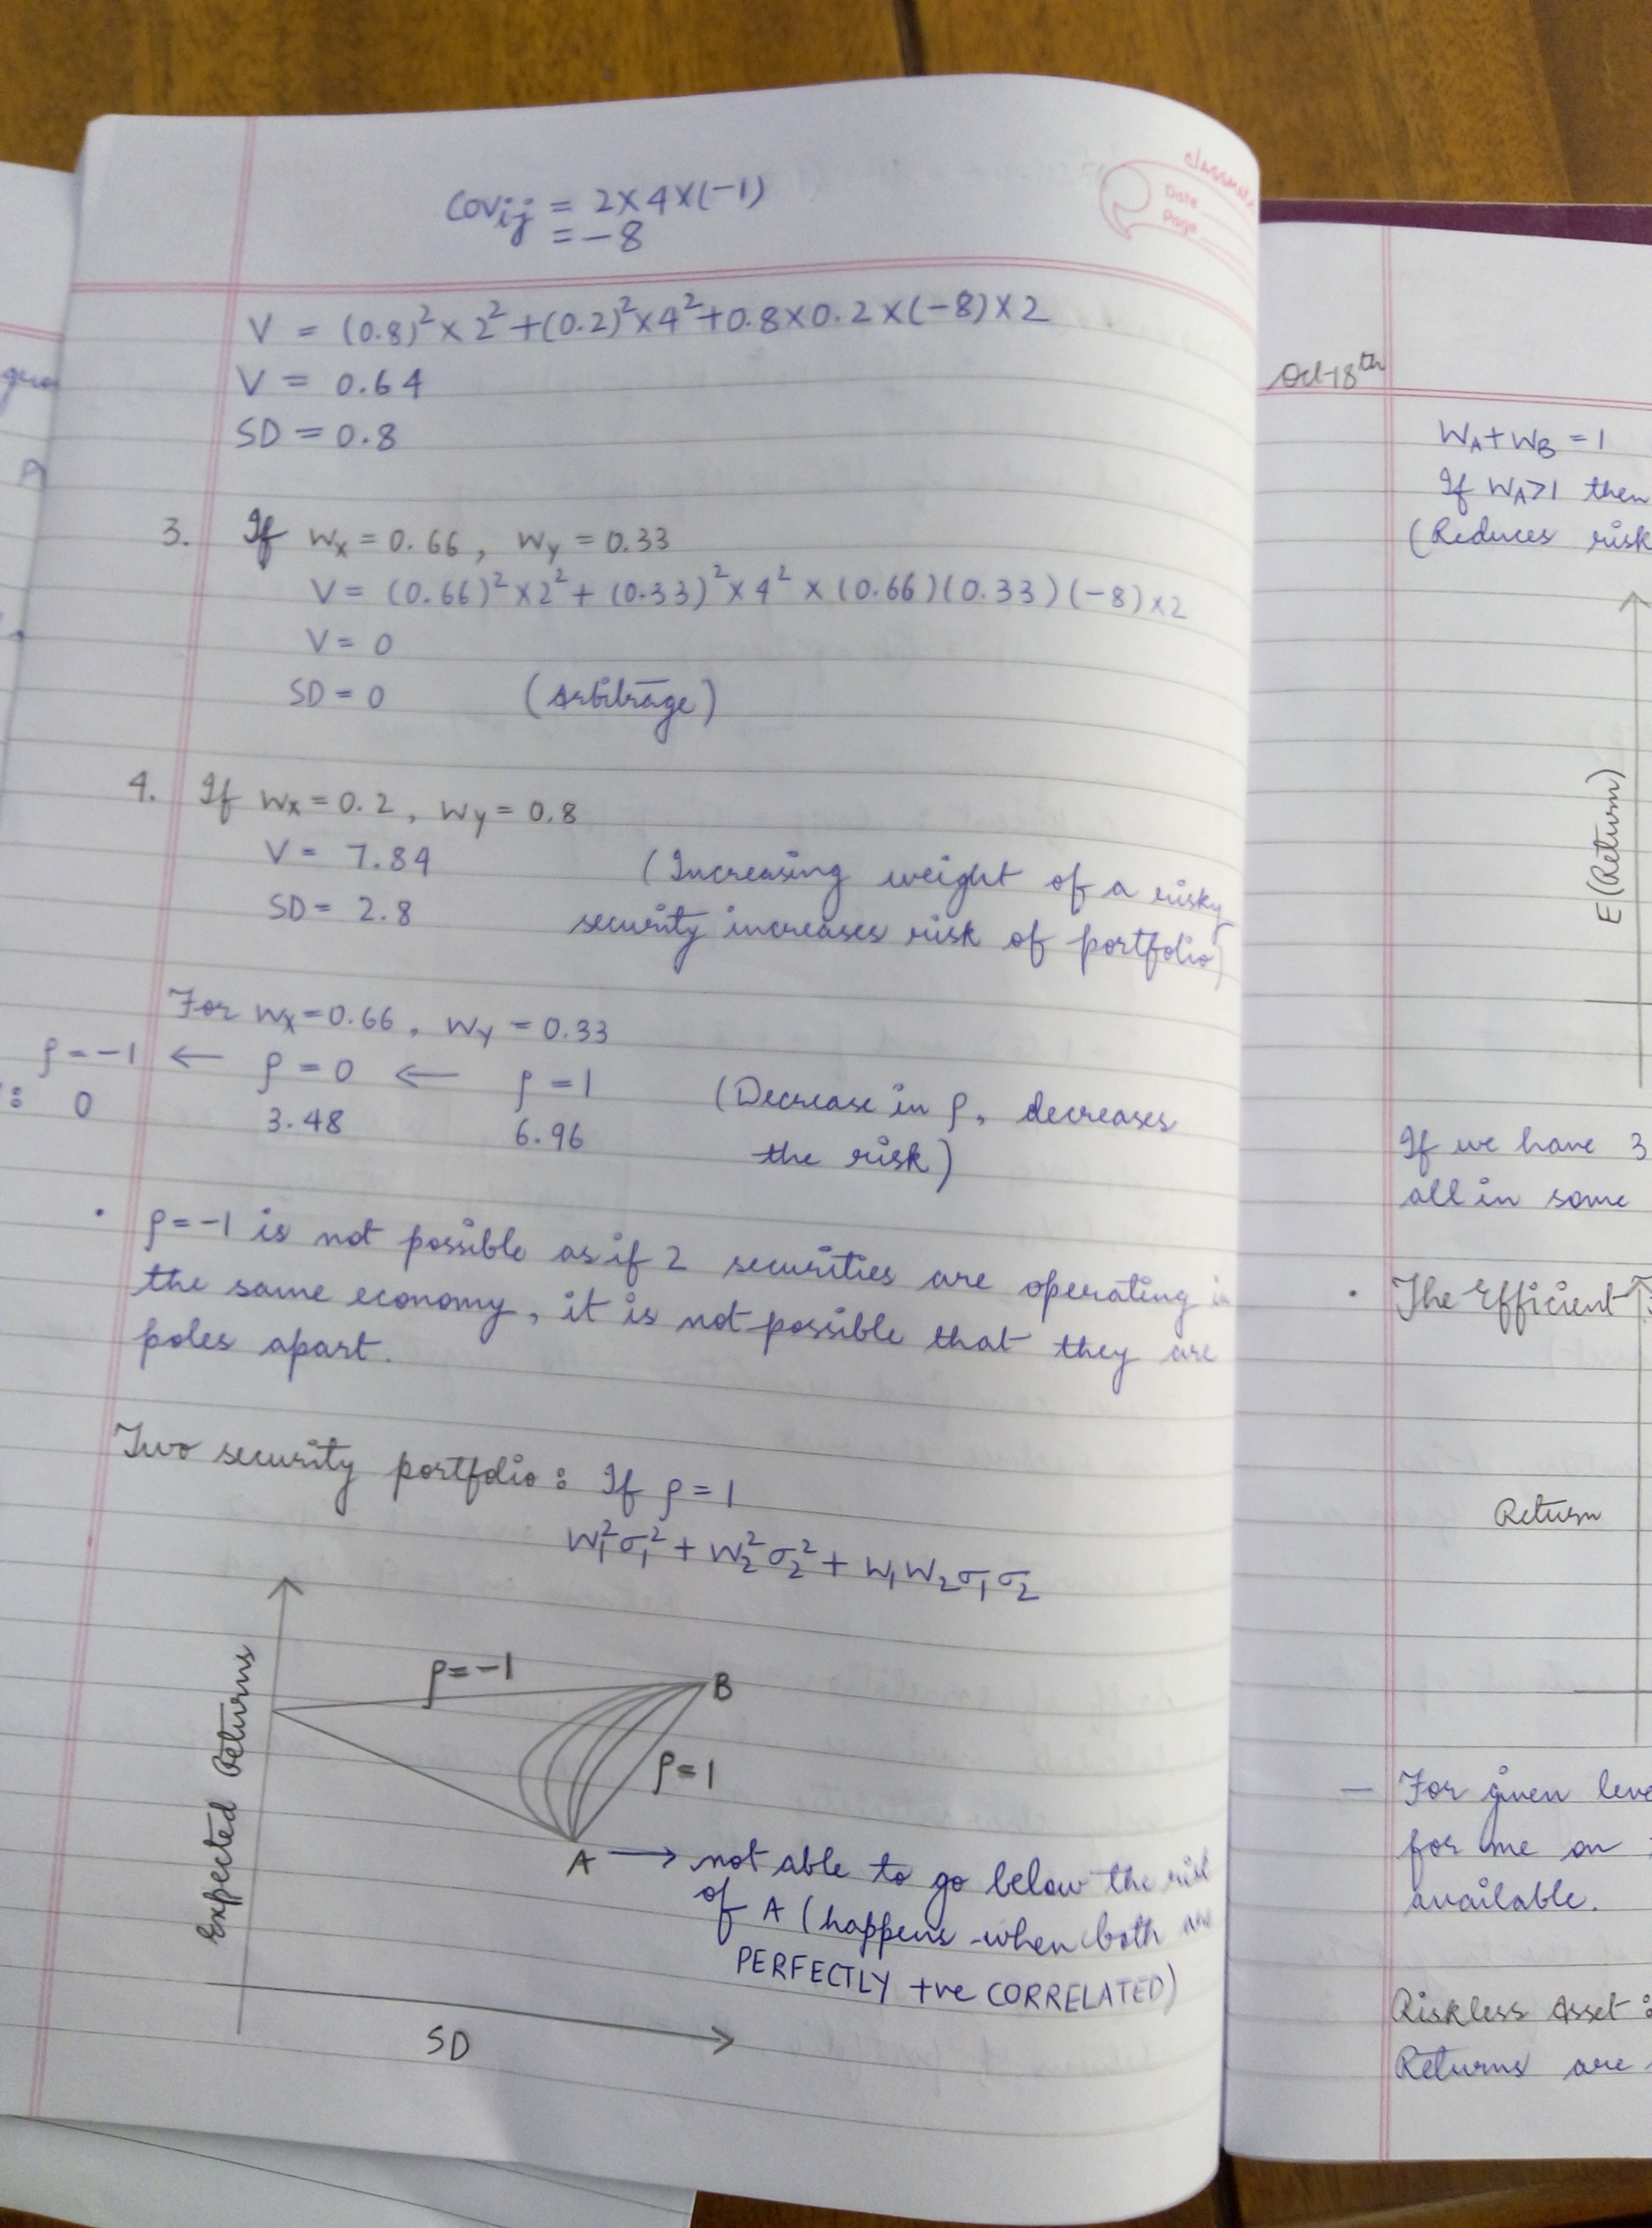 classmate
Date
Page
Cov_ij = 2×4×(-1)
= -8
V = (0.8)² × 2² + (0.2)² × 4² + 0.8×0.2×(-8)×2
V = 0.64
SD = 0.8
3. If Wx = 0.66, Wy = 0.33
V = (0.66)² × 2² + (0.33)² × 4² × (0.66)(0.33)(-8)×2
V = 0
SD = 0 (Arbitrage)
4. If Wx = 0.2, Wy = 0.8
V = 7.84 (Increasing weight of a risky
SD = 2.8 security increases risk of portfolio)
For Wx = 0.66, Wy = 0.33
ρ = -1 ← ρ = 0 ← ρ = 1 (Decrease in ρ, decreases
: 0 3.48 6.96 the risk)
• ρ = -1 is not possible as if 2 securities are operating in
the same economy, it is not possible that they are
poles apart.
Two security portfolio: If ρ = 1
W₁²σ₁² + W₂²σ₂² + W₁W₂σ₁σ₂
Expected Returns
ρ = -1
B
ρ = 1
A → not able to go below the risk
of A (happens when both are
PERFECTLY +ve CORRELATED)
SD
Oct 18th
WA + WB = 1
If WA > 1 then
(Reduces risk
E(Return)
If we have 3
all in some
• The Efficient
Return
— For given leve
for me on
available.
Riskless Asset:
Returns are